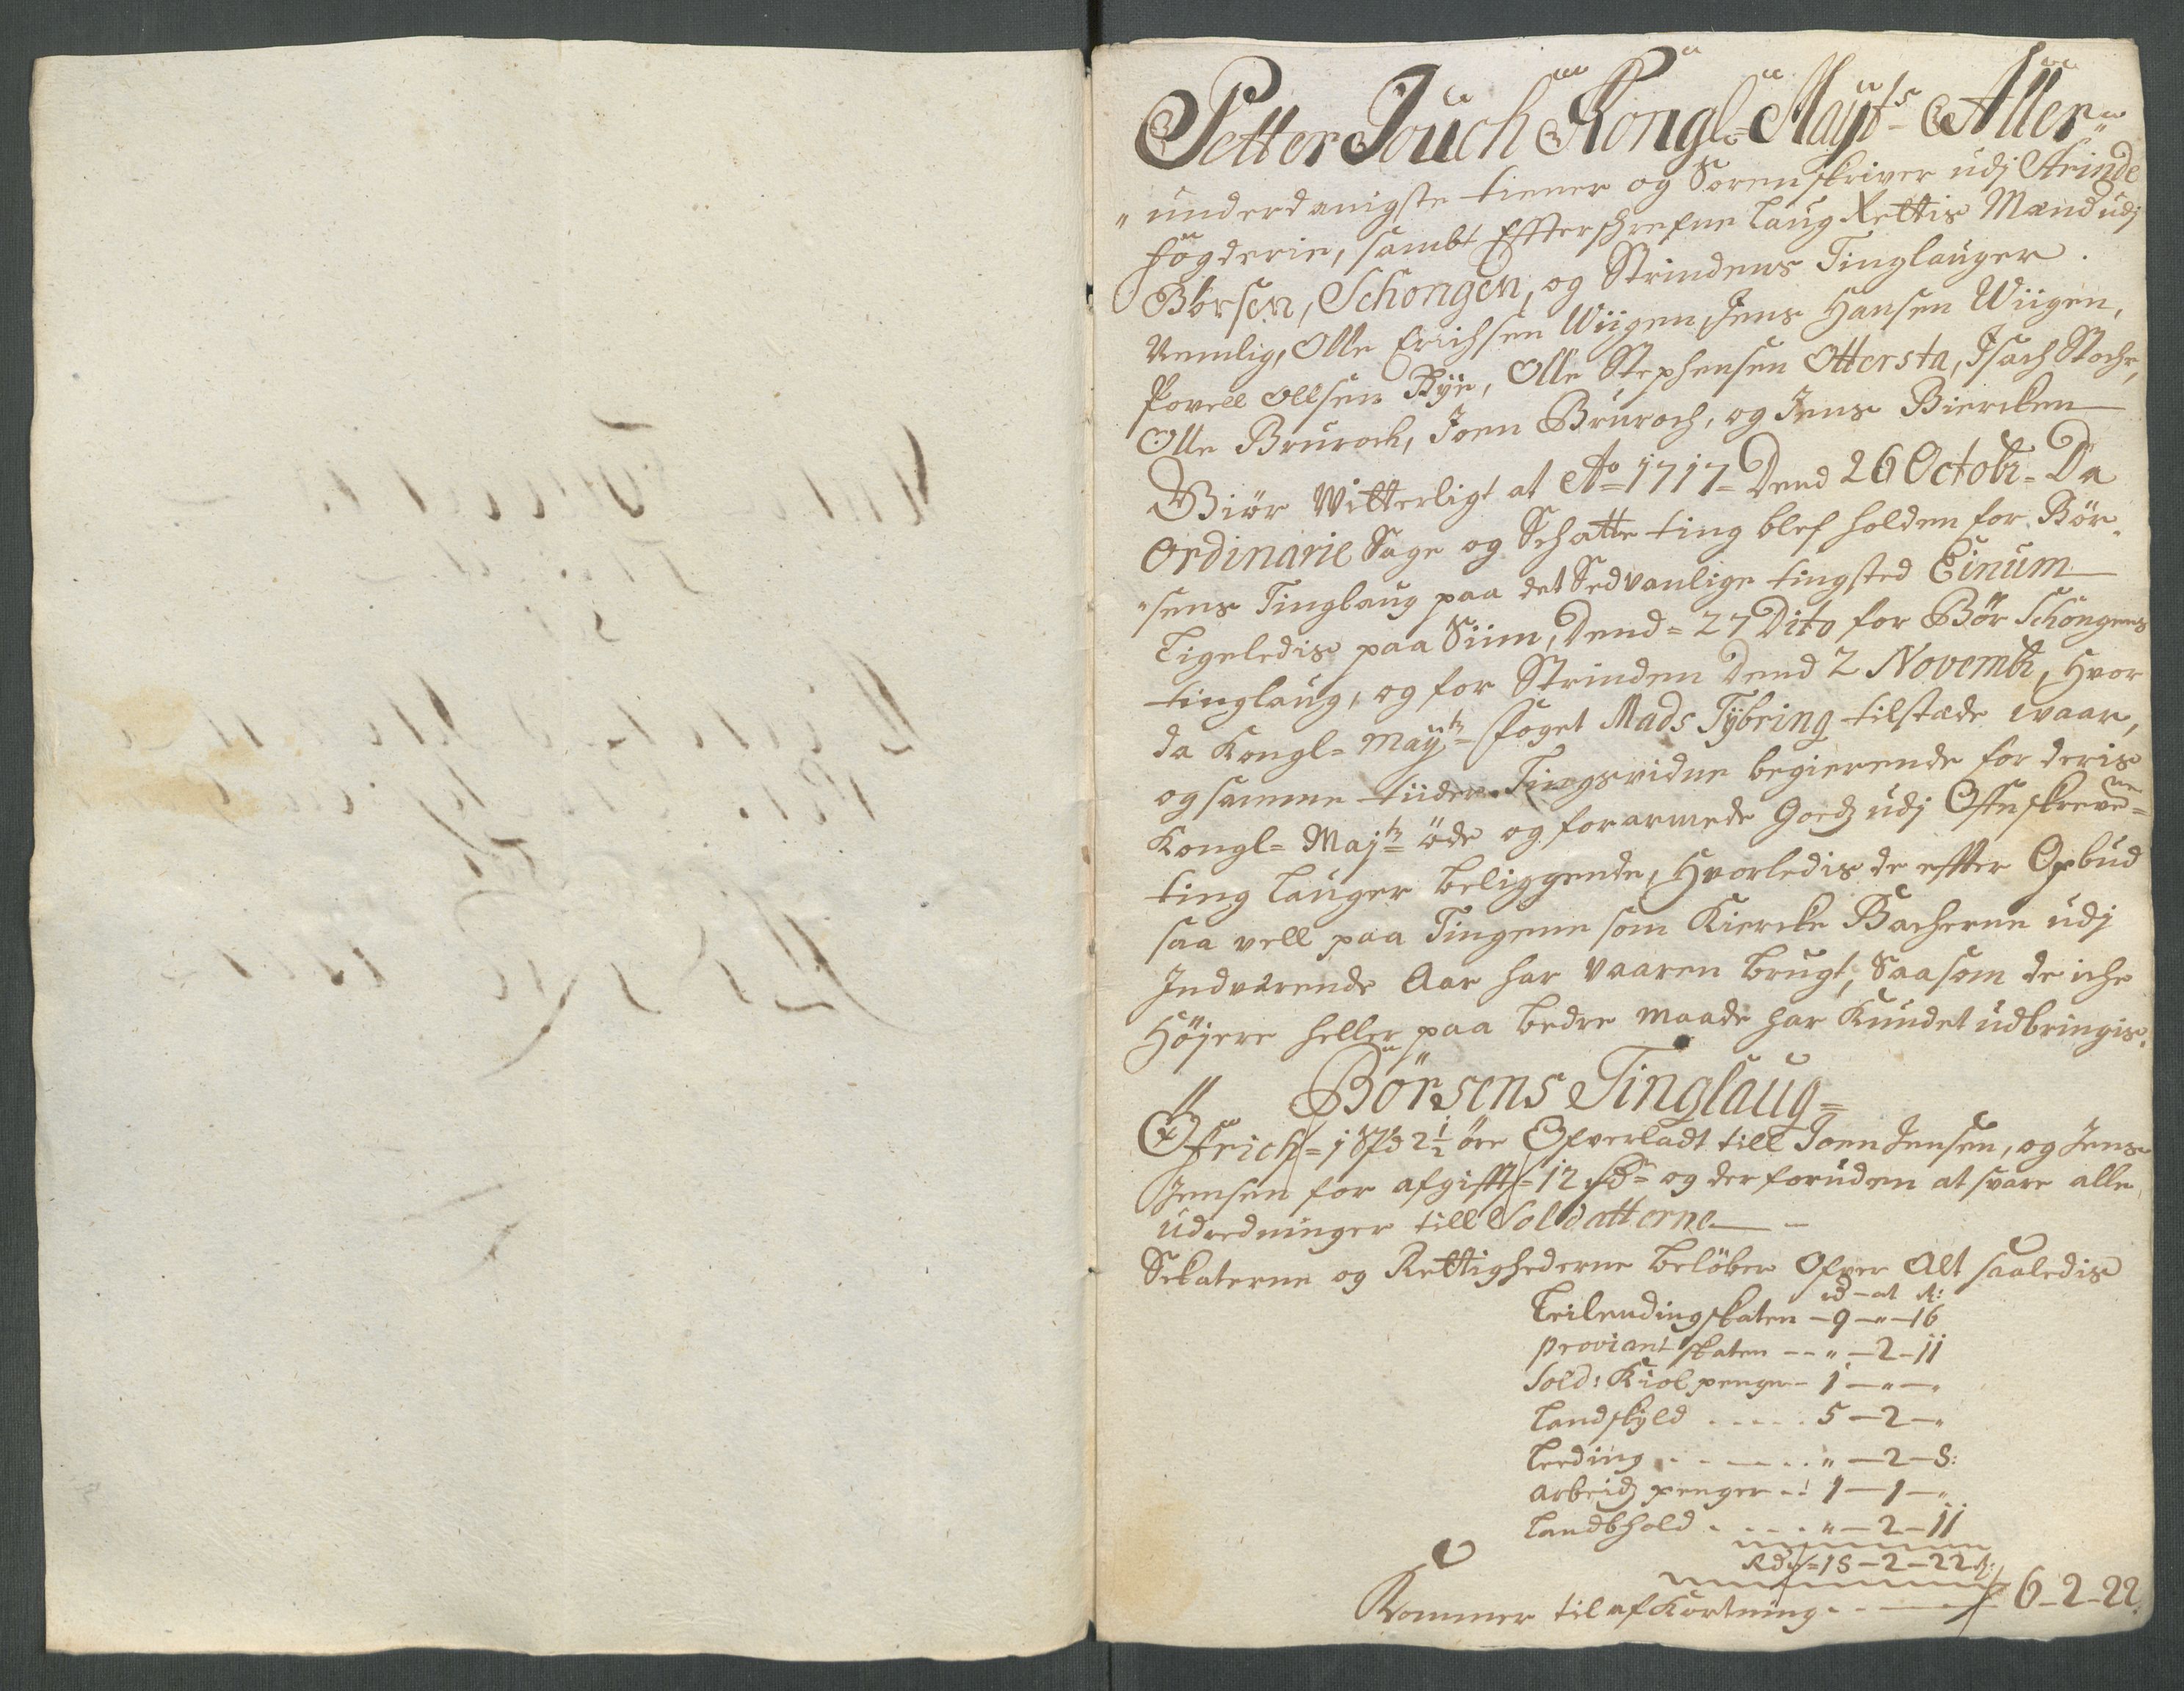 Petter Juch Kongl= Mayts Aller„
„underdanigste tiener og Sorenskriver udj Strinde
fogderie, sambt Effterschrefne Laug Rettis Mænd udj
Börsen, Schongen, og Strindens Tinglauger.
Nemlig, Olle Erichsen Wiigen, Jens Hansen Wiigen,
Povell Ollsen Bye, Olle Stephensen Ottersta, Isach Stoche,
Olle Brurock, Joen Bruroch, og Jens Biercken
Giör Witterligt at Ao= 1717= Dend 26 Octobr= Da
Ordinarie Sage og Schatte ting blef holden for Bör„
„sens Tinglaug paa det Sedvanlige tingsted Einum
Ligeledis paa Siim, Dend= 27 Dito for Bör Schongens
tinglaug, og for Strinden Dend 2 Novembr, Hvor
da Kongl= Mayts= foget Mads Tybring tilstæde waar,
og samme tiider Tingsvidne begierende for deris
Kongl= Majts= øde og forarmede Goedz udj Offnskrevne=
ting Lauger beliggende, Hvorledis de effter Opbud
saa vell paa Tingene som Kiercke Backerne udj
Indværende Aar har vaaren brugt, Saasom de iche
Höjere heller paa bedre maade har Kundet udbringis.
Börsens Tinglaug=
Öfrich= 1 Spd 2 1/2 öre Ofverladt till Joen Jensen, og Jens
Jensen for afgifft= 12 rd= og der foruden at svare alle
udredninger till Soldatterne
Skaterne og Rettighederne belöber Ofver Alt saaledis
rd — ort ß:
Leilendingskaten — 9 — „ — 16
Proviant skaten — „ — 2 — 11
Sold: Kiol penge — 1 — „ — „
Landskyld . . . . . 5 — 2 — „
Leeding . . . . . „ — 2 — 8:
Arbeidz penger . . 1 — 1 — „
Landbhold . . . . . „ — 2 — 11
Rdr = 18 — 2 — 22 ß:
Kommer til afkortning . . — 6 — 2 — 22.